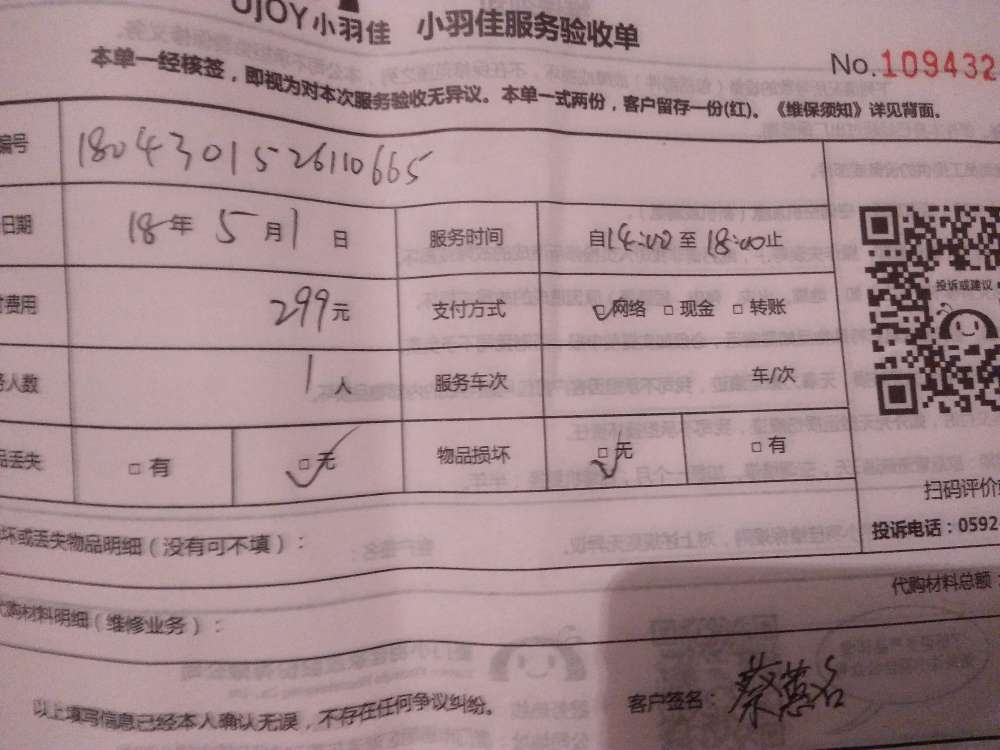 UJOY小羽佳 小羽佳服务验收单
No.109432
本单一经核签，即视为对本次服务验收无异议。本单一式两份，客户留存一份(红)。《维保须知》详见背面。
编号 1804301526110665
日期 18年5月1日 服务时间 自14:00至18:00止
费用 299元 支付方式 □网络 □现金 □转账
投诉或建议
人数 1人 服务车次 车/次
丢失 □有 □无 物品损坏 □无 □有
扫码评价
坏或丢失物品明细（没有可不填）：
投诉电话：0592-
代购材料总额：
代购材料明细（维修业务）：
以上填写信息已经本人确认无误，不存在任何争议纠纷。
客户签名：蔡